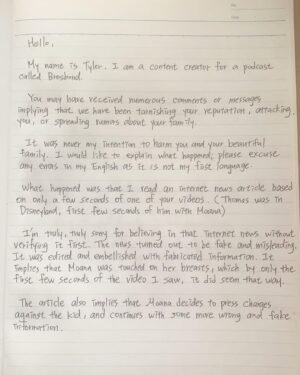 No.
Date
Hello,
My name is Tyler. I am a content creator for a podcast
called Brosbund.
You may have received numerous comments or messages
implying that we have been tarnishing your reputation, attacking
you, or spreading rumors about your family.
It was never my intention to harm you and your beautiful
family. I would like to explain what happened; please excuse
any errors in my English as it is not my first language.
What happened was that I read an internet news article based
on only a few seconds of one of your videos. (Thomas was in
Disneyland, first few seconds of him with Moana)
I'm truly, truly sorry for believing in that internet news without
verifying it first. The news turned out to be fake and misleading.
It was edited and embellished with fabricated information. It
implies that Moana was touched on her breasts, which by only the
first few seconds of the video I saw, it did seem that way.
The article also implies that Moana decides to press charges
against the kid, and continues with some more wrong and fake
information.